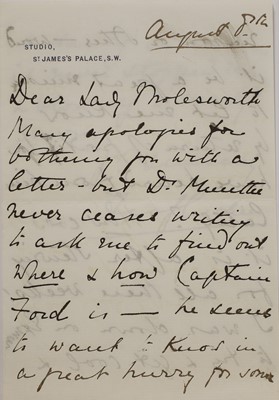 August 8th
STUDIO,
ST JAMES'S PALACE, S.W.
Dear Lady Molesworth
Many apologies for
bothering you with a
letter - but Dr Munthe
never ceases writing
to ask me to find out
Where & how Captain
Ford is — he seems
to want to know in
a great hurry for some